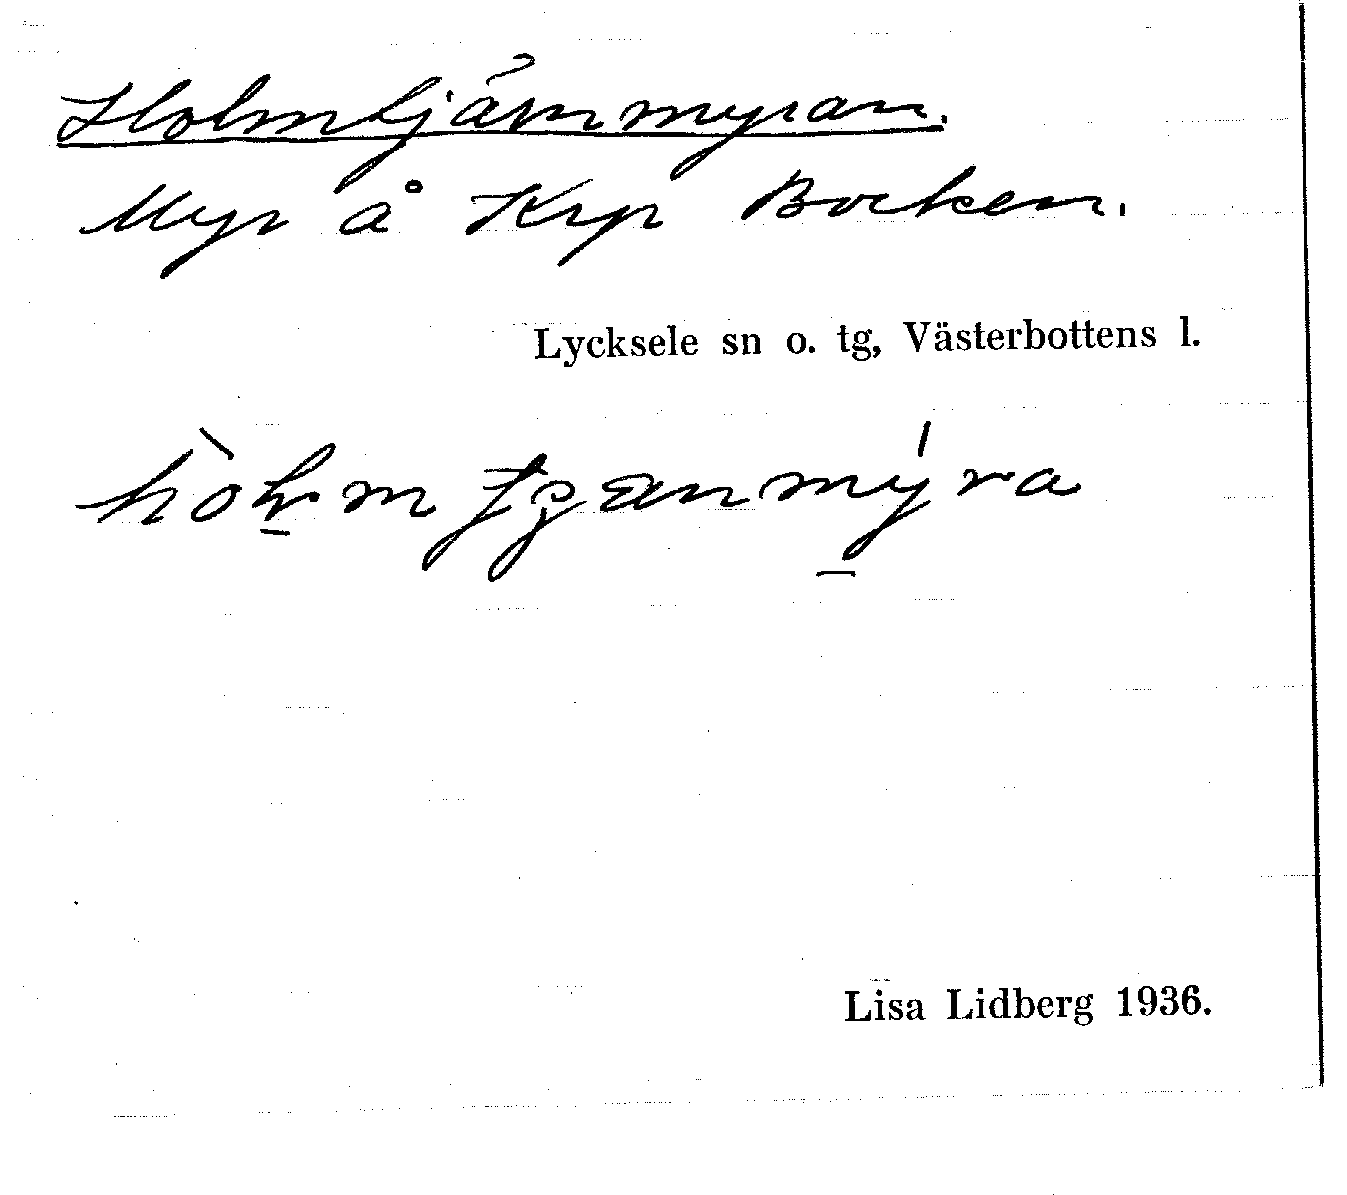 Holmtjärnmyran.
Myr å Krp Bocken.
Lycksele sn o. tg, Västerbottens l.
Lisa Lidberg 1936.